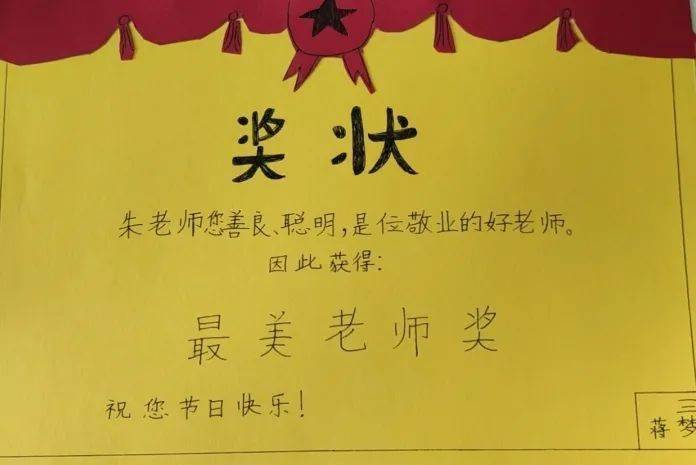 奖状
朱老师您善良、聪明,是位敬业的好老师。
因此获得:
最美老师奖
祝您节日快乐!
三
蒋梦